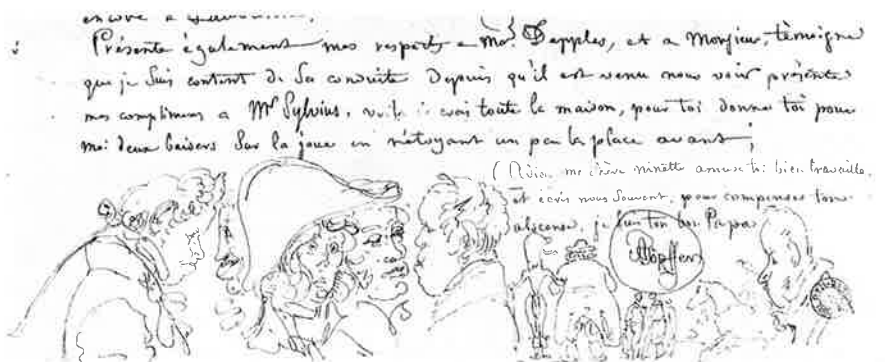 encore a
Présente également mes respects a Md. Dapples, et a Monsieur, témoigne
que je suis content de sa conduite Depuis qu'il est venu nous voir présente
mes complimens a Mr Sylvius. voila je crois toute la maison, pour toi donne toi pour
moi deux baisers sur la joue en nétoyant un peu la place avant;
(Adieu ma chère ninette amuse toi bien travaille,
et écris nous souvent, pour compenser ton
absence, je suis ton bon Papa
Töpffer